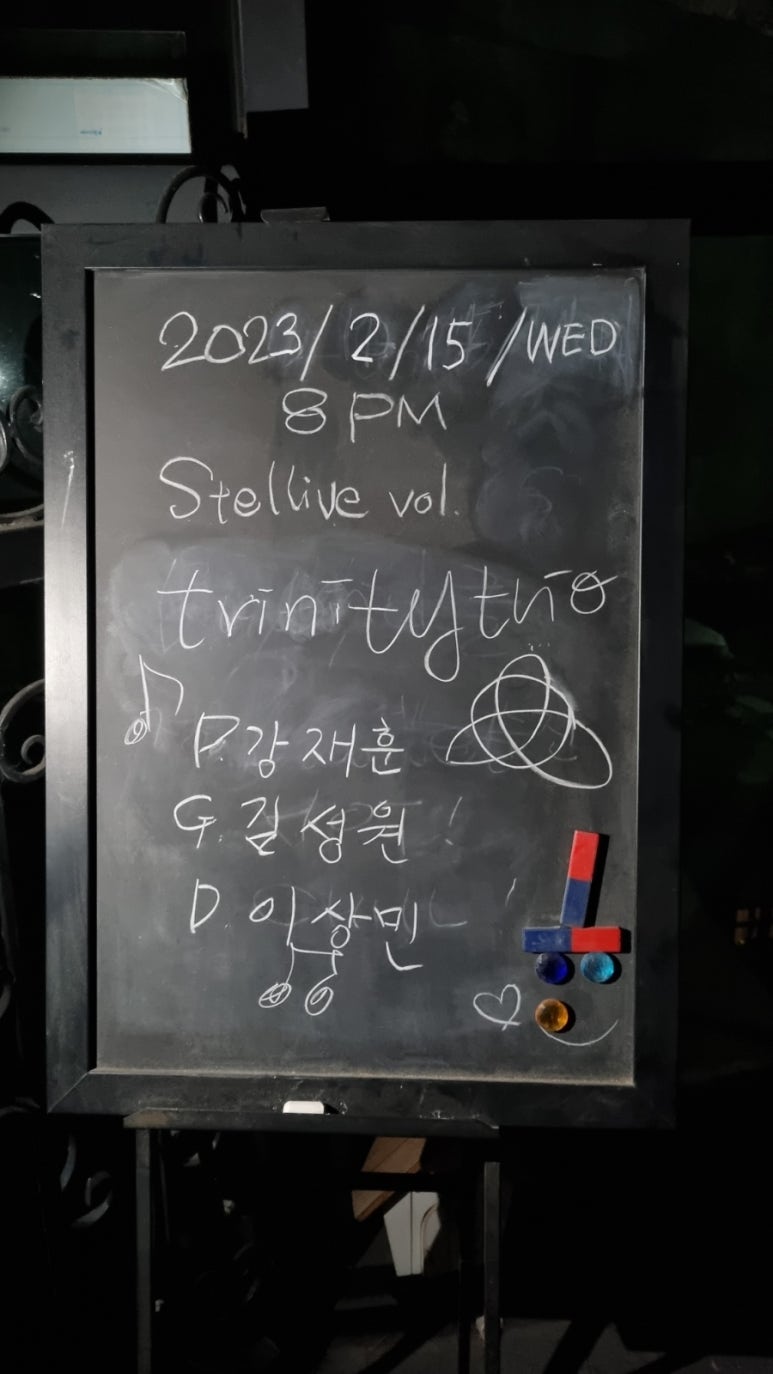 2023/2/15/WED
8PM
Stellive vol.
trinity trio
P. 강재훈
G. 길성원
D. 이상민